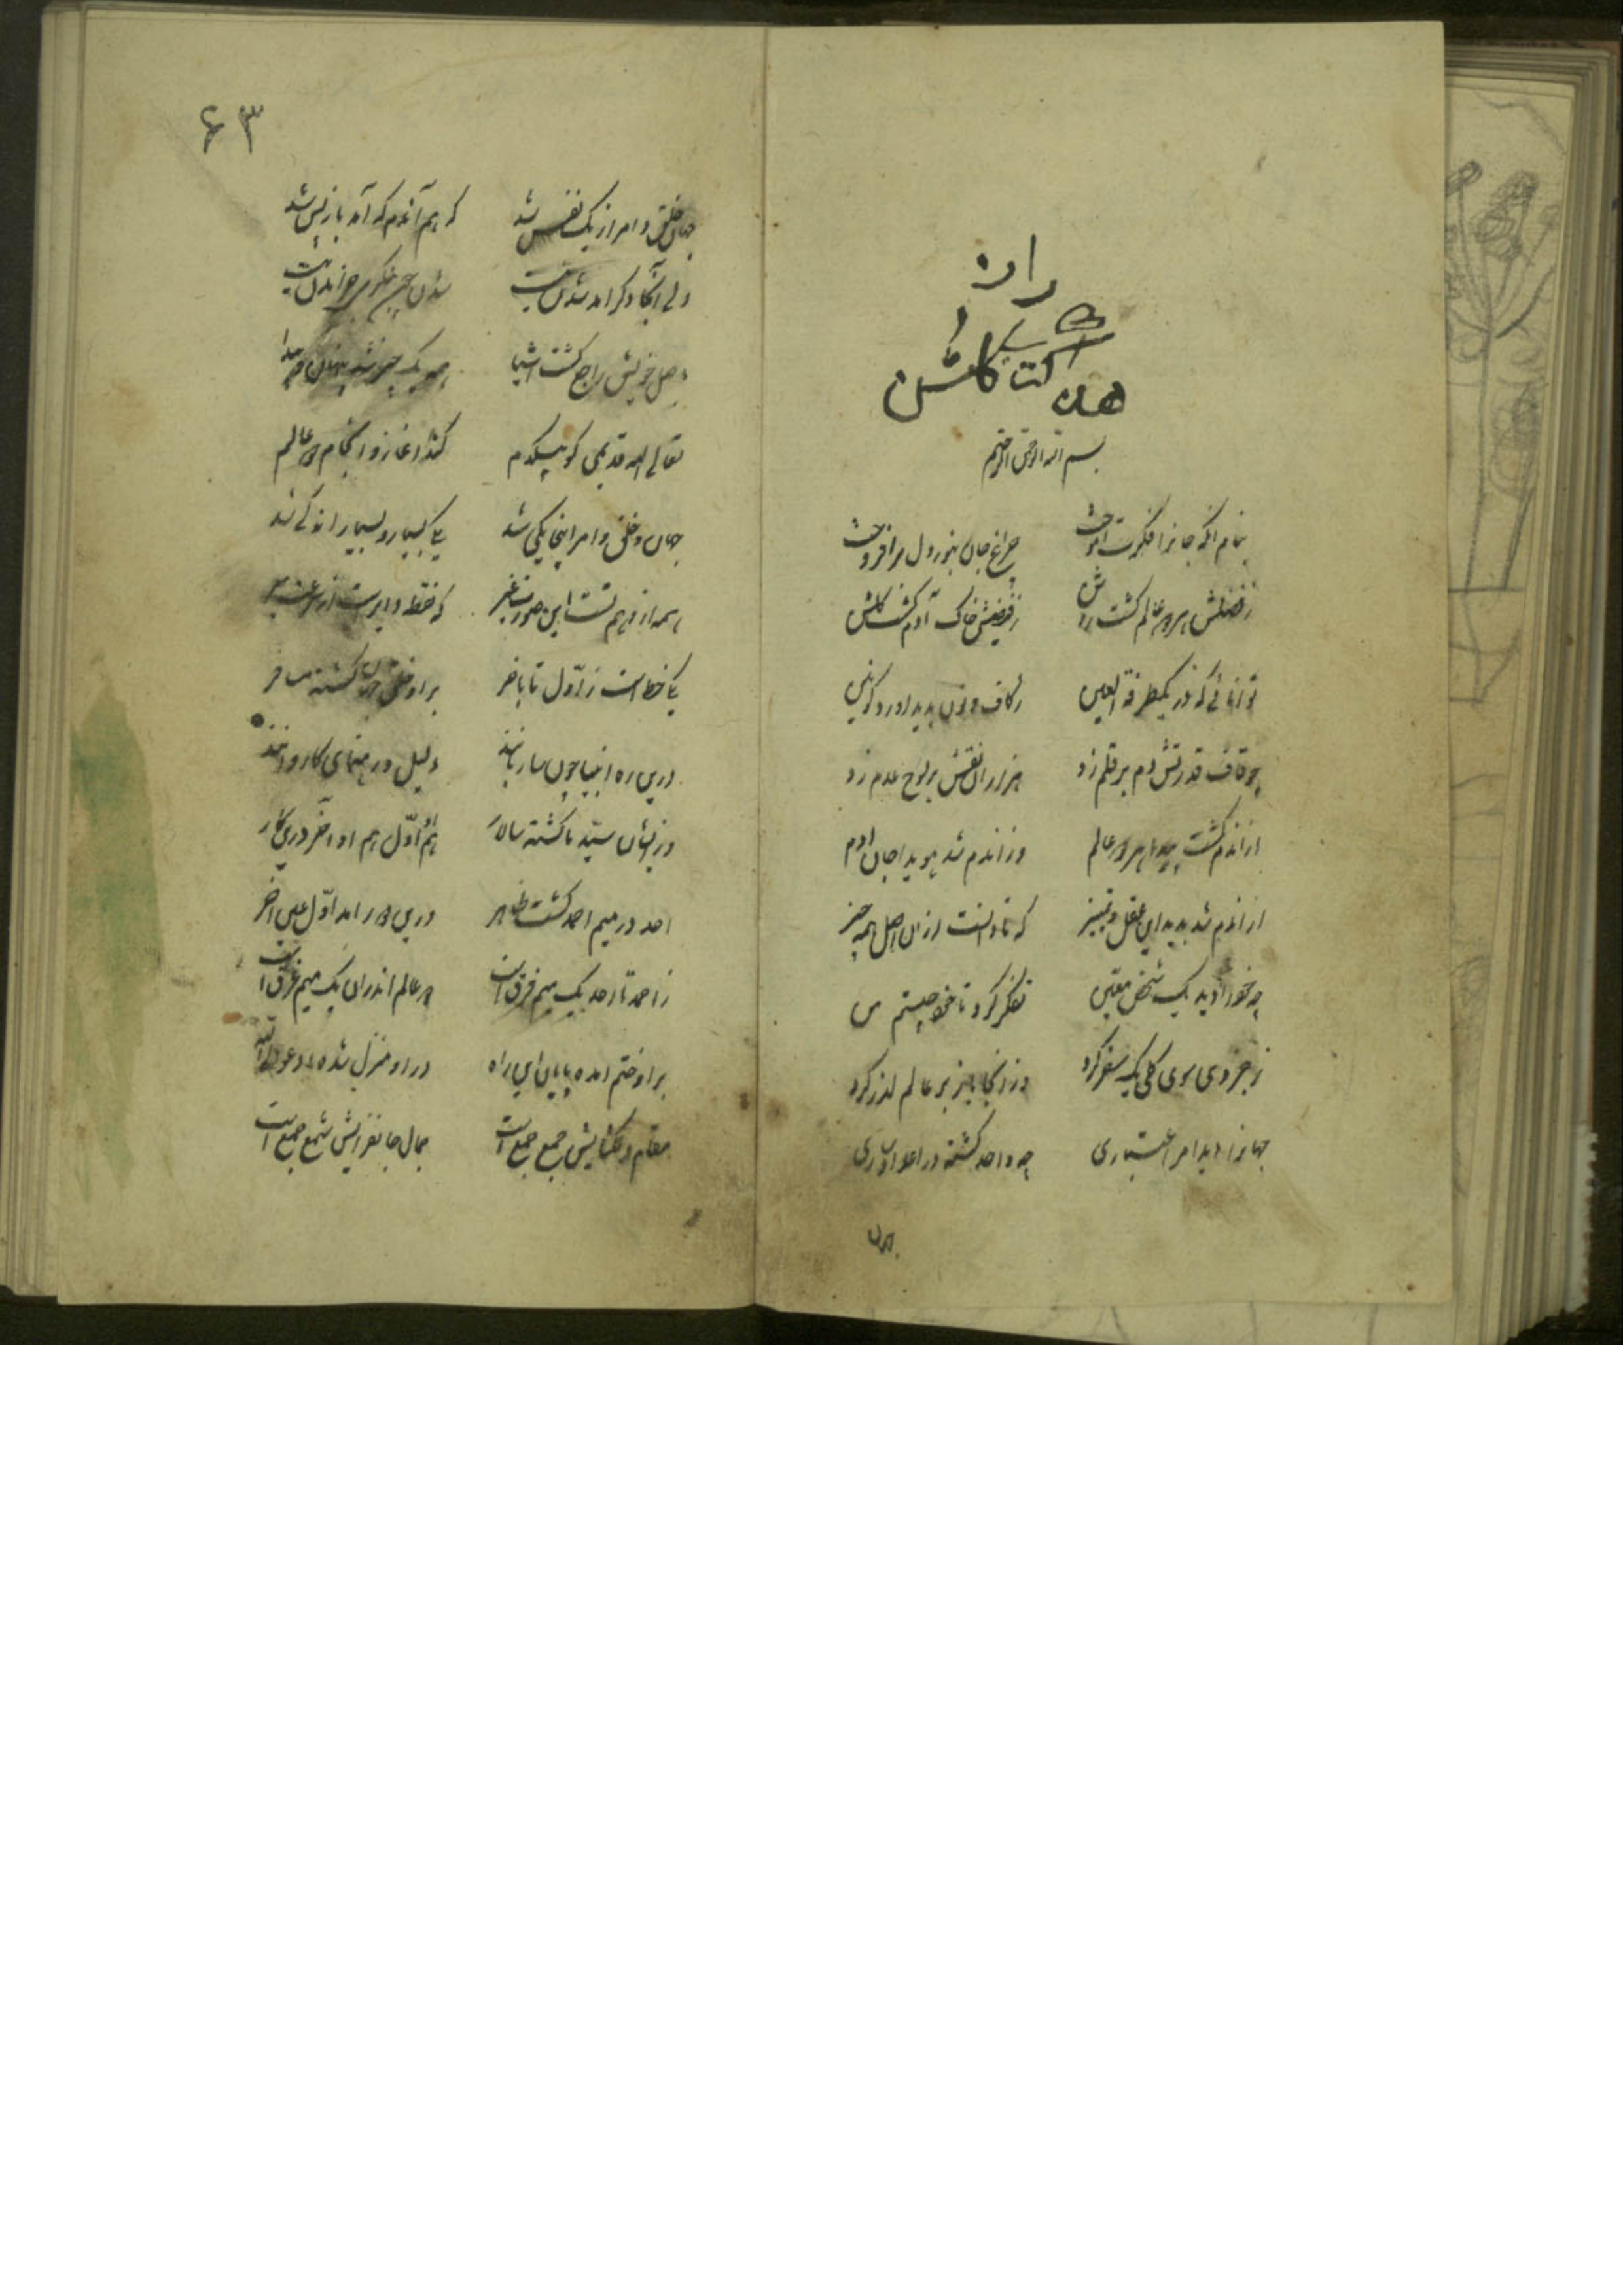 راز
هذا کتاب گلشن
بسم الله الرحمن الرحیم
بنام انکه جانرا فکرت اموخت چراغ جان بنور دل برافروخت
ز فضلش هر دو عالم کشت روشن ز فیضش خاک آدم کشت کلشن
توانائی که در یکطرفة العین ز کاف و نون پدید اورد کونین
چو قاف قدرتش دم بر قلم زد هزاران نقش بر لوح عدم زد
ازاندم کشت پیدا هر دو عالم وزاندم شد هویدا جان ادم
ازاندم شد پدید این عقل و تمییز که تا دانست ازان اصل همه چیز
چه خود را دید یک شخص معین تفکر کرد تا خود چیستم من
ز جزوی سوی کلی یک سفر کرد وزانجا باز بر عالم گذر کرد
جهانرا دید امر اعتباری چه واحد کشته در اعداد ساری
جهان
۶۳
جهان خلق و امر از یک نفس شد که هم آندم که آمد باز پس شد
ولی آنجا‌ دکر امد شدن نیست شدن چون بنکری جز امدن نیست
باصل خویش راجع کشت اشیا همه یک چیز شد پنهان و پیدا
تعالی الله قدیمی کو بیکدم کند اغاز و انجام دو عالم
جهان و خلق و امر اینجا یکی شد یکی بسیار و بسیار اندکی شد
همه از وهم تست این صورت غیر که نقطه دایرست از سرعت سیر
یکی خط است ز اوّل تا باخر برو خلق جهان کشته مسافر
درین ره انبیا چون ساربانند دلیل و رهنمای کاروانند
وزیشان سیّد ما کشته سالار هم اوّل هم او آخر درین کار
احد در میم احمد کشت ظاهر درین دور امد اوّل عین اخر
ز احمد تا احد یک میم فرق است همه عالم اندران یک میم غرق است
برو ختم امده پایان این راه درو منزل شده ادعوا الی الله
مقام دلکشایش جمع جمع است جمال جانفزایش شمع جمع است